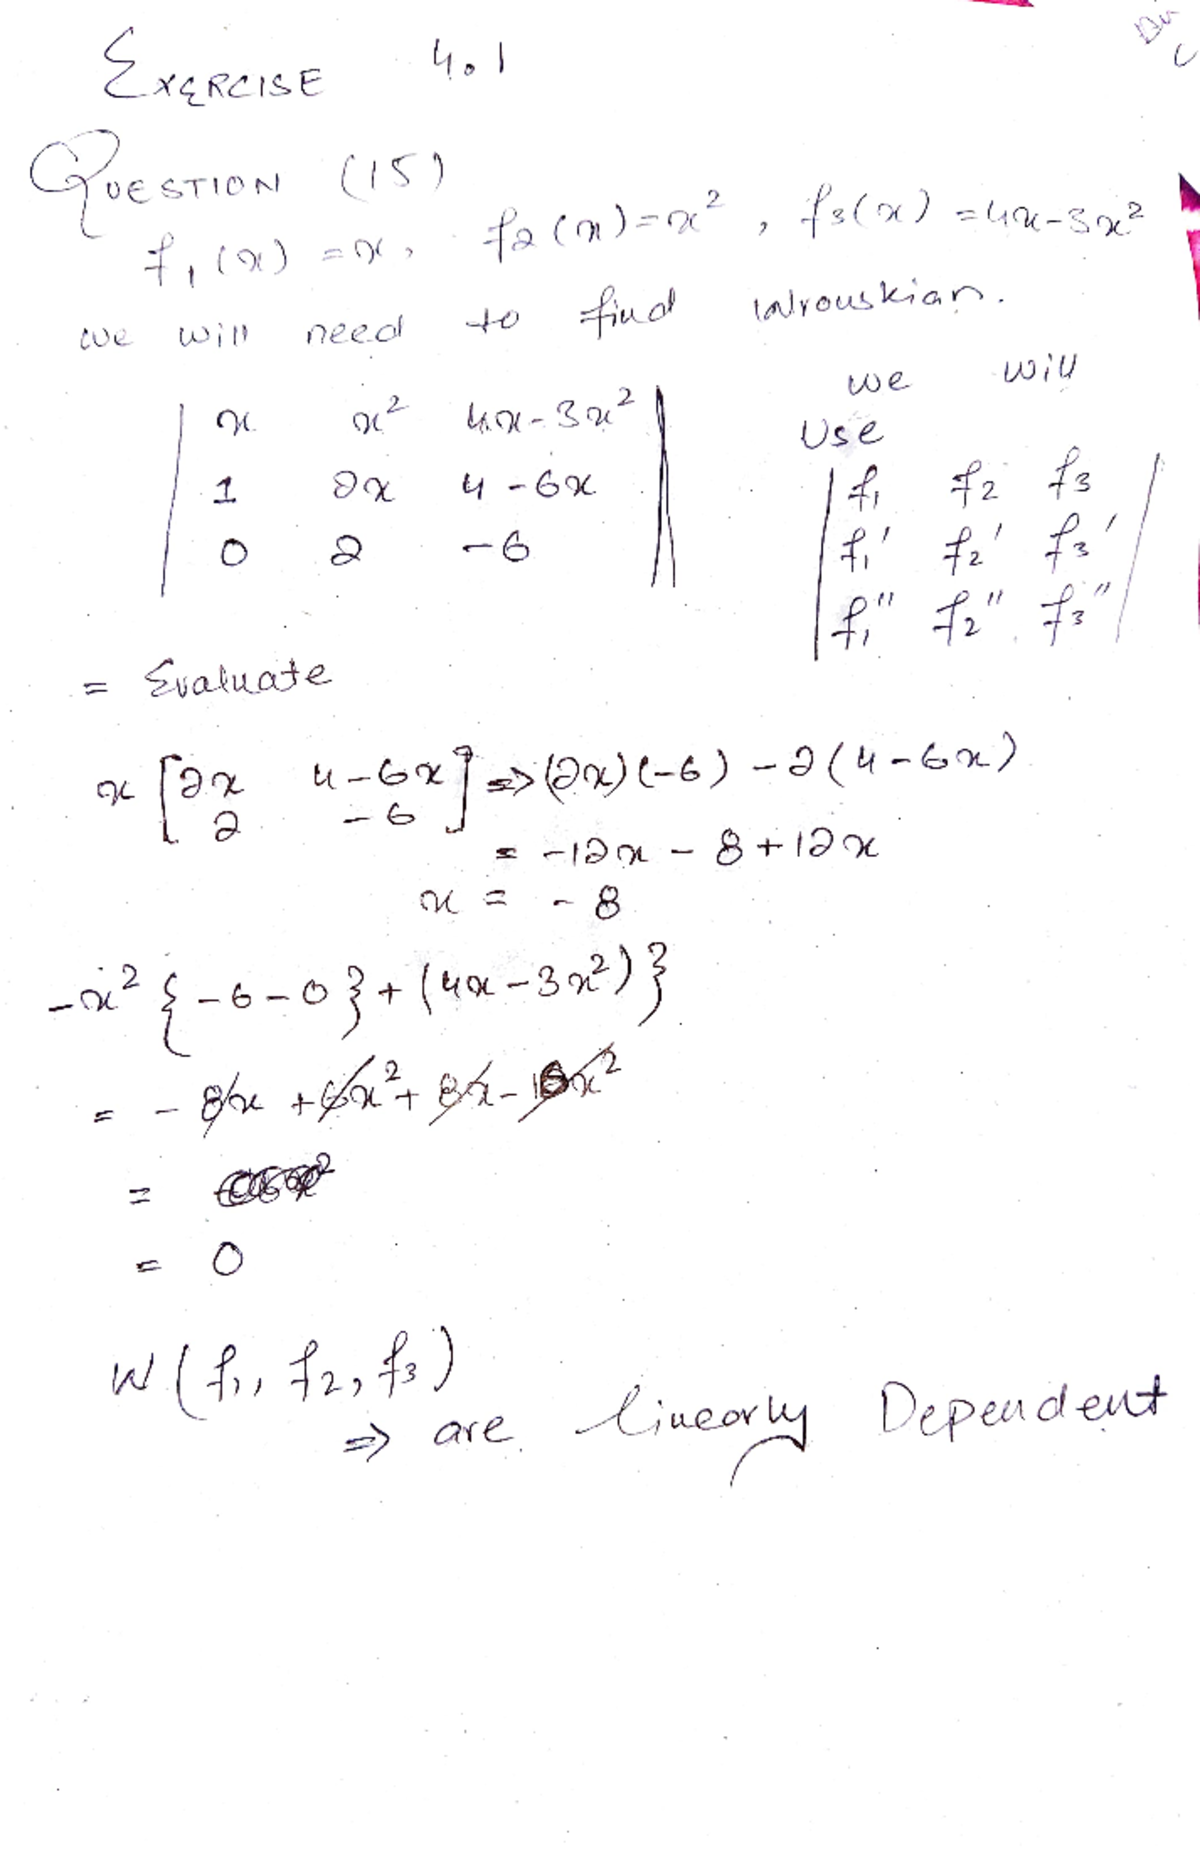 EXERCISE 4.1
QUESTION (15)
f₁(x) = x, f₂(x) = x², f₃(x) = 4x-3x²
we will need to find Wrouskian.
| x x² 4x-3x² |
| 1 2x 4-6x |
| 0 2 -6 |
we will
Use
| f₁ f₂ f₃ |
| f₁' f₂' f₃' |
| f₁" f₂" f₃" |
= Evaluate
x [2x 4-6x] => (2x)(-6) - 2(4-6x)
2 -6
= -12x - 8 + 12x
x = -8
-x² {-6-0} + (4x-3x²)}
= -8x + 6x² + 8x - 6x²
=
= 0
W(f₁, f₂, f₃)
=> are linearly Dependent